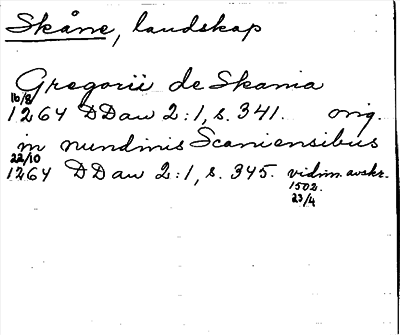 Skåne, landskap
Gregorii de Skania
16/8
1264 DDan 2:1, s. 341. orig.
in nundinis Scaniensibus
22/10
1264 DDan 2:1, s. 345. vidim. avskr.
1502.
23/4